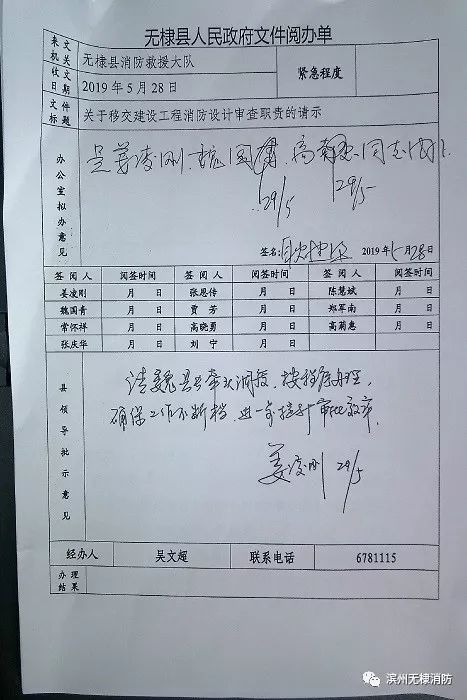 无棣县人民政府文件阅办单
来文机关 无棣县消防救援大队 紧急程度
收文日期 2019年5月28日
文件标题 关于移交建设工程消防设计审查职责的请示
办公室拟办意见
呈姜凌刚、魏国青、高菊惠同志阅示
29/5 29/5
签名: 2019年5月28日
签阅人 阅签时间 签阅人 阅签时间 签阅人 阅签时间
姜凌刚 月 日 张恩传 月 日 陈慧斌 月 日
魏国青 月 日 贾芳 月 日 郑军南 月 日
常怀祥 月 日 高晓勇 月 日 高菊惠 月 日
张庆华 月 日 刘宁 月 日
县领导批示意见
请魏县长牵头调度,按程序办理,
确保工作不断档,进一步提升审批效率.
姜凌刚 29/5
经办人 吴文超 联系电话 6781115
办理结果
滨州无棣消防